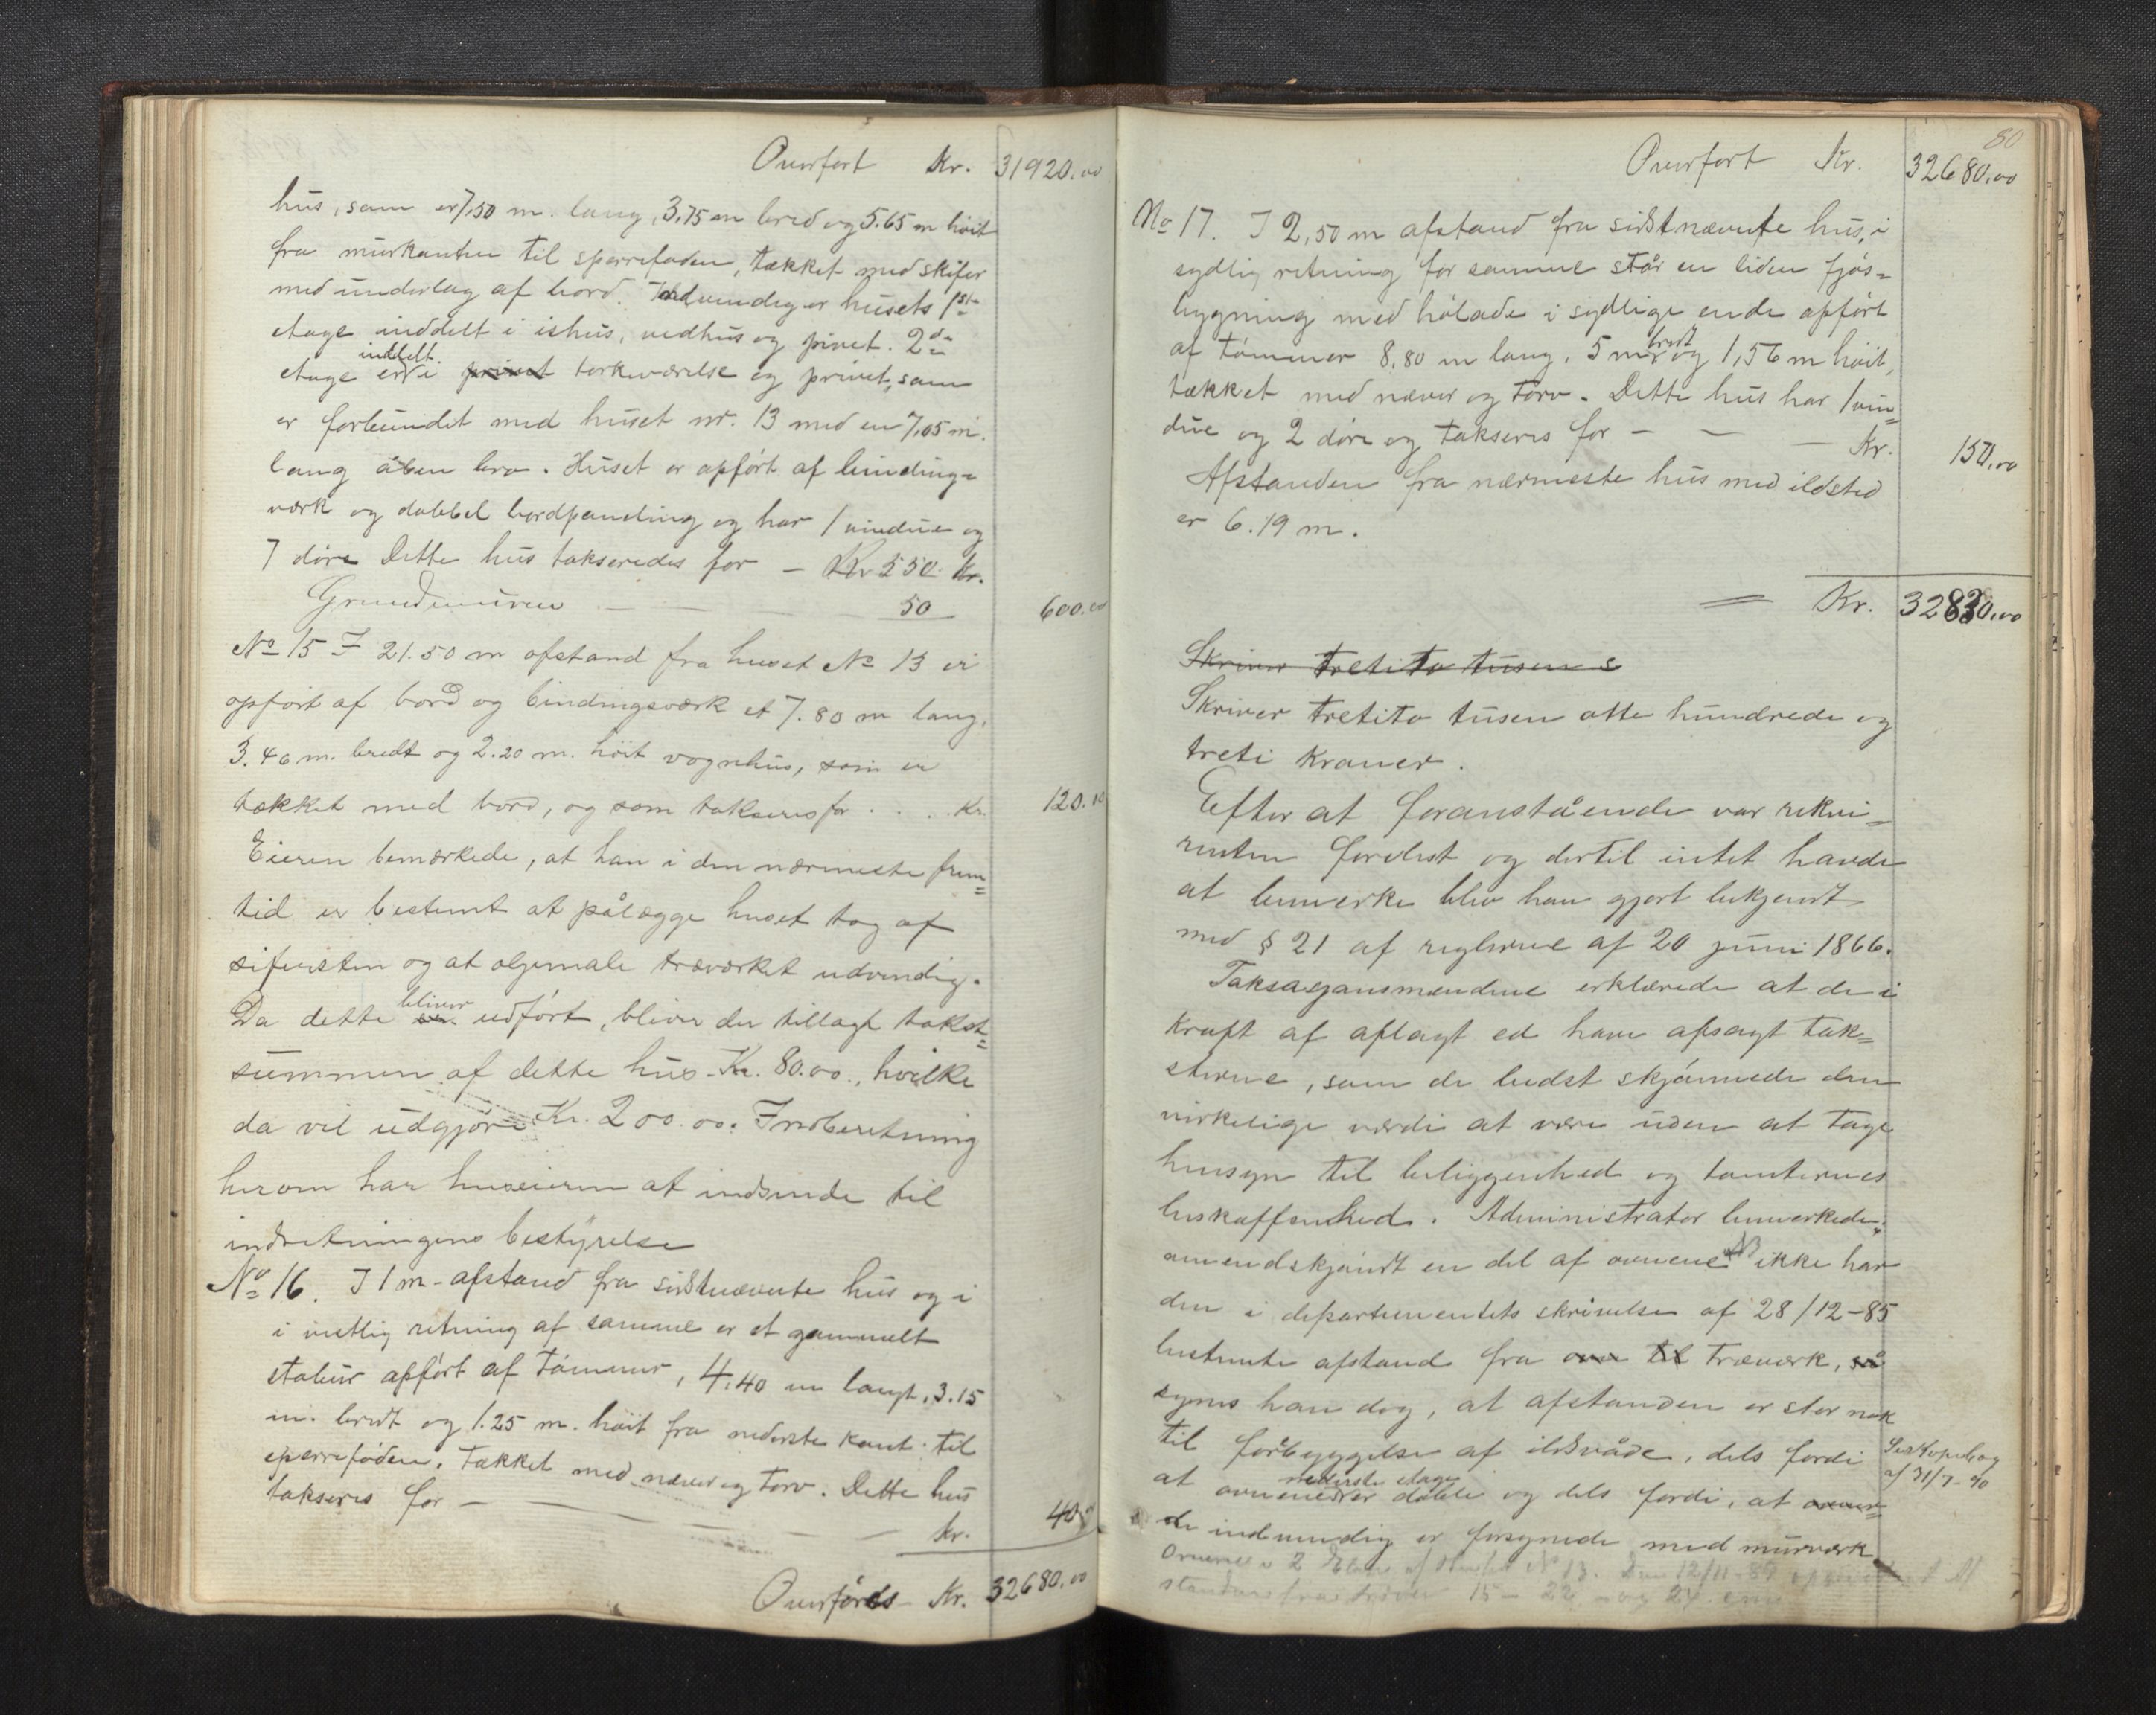 Overført Kr. 31920.00
hus, som er 7,50 m. lang, 3,75 m bred og 5.65 m høit
fra murkanten til sperrefoden, tækket med skifer
med underlag af bord. Indvendig er husets 1ste
etage inddelt i ishus, vedhus og privet. 2den
etage er inddelt i privet tørkeværelse og privet, som
er forbundet med huset nr. 13 med en 7,05 m.
lang åben bro. Huset er opført af binding=
værk og dobbel bordpaneling og har 1 vindue og
7 døre Dette hus takseredes for – Kr 550 Kr.
Grundmuren — — — 50 600.00
No 15 I 21.50 m afstand fra huset No 13 er
opført af bord og bindingsværk et 7.80 m lang,
3.40 m. bredt og 2.20 m. høit vognhus, som er
tækket med bord, og som takseres for . . . Kr. 120.00
Eieren bemærkede, at han i den nærmeste frem=
tid er bestemt at pålægge huset tag af
sifersten og at oljemale træværket udvendig.
Da dette er bliver udført, bliver der tillagt takst=
summen af dette hus Kr. 80.00., hvilke
da vil udgjøre Kr. 200.00. Indberetning
herom har huseieren at indsende til
indretningens bestyrelse
No 16. I 1 m afstand fra sidstnævnte hus og i
i vestlig retning af samme er et gammelt
stabur opført af tømmer, 4,40 m langt, 3.15
m. bredt og 1.25 m. høit fra nederste kant til
sperrefoden. Tækket med næver og torv. Dette hus
takseres for — — — — Kr. 40.00
Overføres Kr. 32680.00
80
Overført Kr. 32680.00
No 17. I 2,50 m afstand fra sidstnævnte hus, i
sydlig retning for samme står en liden fjøs=
bygning med hølade i sydlige ende opført
af tømmer 8,80 m lang, 5 m bredt og 1,56 m høit,
tækket med næver og torv. Dette hus har 1 vin=
due og 2 døre og takseres for — — — Kr. 150.00
Afstanden fra nærmeste hus med ildsted
er 6.19 m.
= Kr. 32830.00
Skriver tretito tusen
Skriver tretito tusen otte hundrede og
treti kroner.
Efter at foranstående var rekvi=
renten forelæst og dertil intet havde
at bemerke blev han gjort bekjendt
med § 21 af reglerne af 20 juni 1866.
Taksasjonsmændene erklærede at de i
kraft af aflagt ed have afsagt tak=
sterne, som de bedst skjønnede den
virkelige værdi at være uden at tage
hensyn til beliggenhed og tomternes
beskaffenhed. Administrator bemerkede:
omendskjøndt en del af ovnene NB ikke har
den i departementets skrivelse af 28/12–85
bestemte afstand fra ovn til træværk, så
synes han dog, at afstanden er stor nok
til forebyggelse af ildsvåde, dels fordi
at ovnenes nederste etage er doble og dels fordi, at ovner=
de indvendig er forsynede med murværk
Se Kopibog
af 31/7–90
Ovnene i 2 Etage af Huset No 13. Den 12/11–89
standen fra træet 15 – 22 og 24 cm